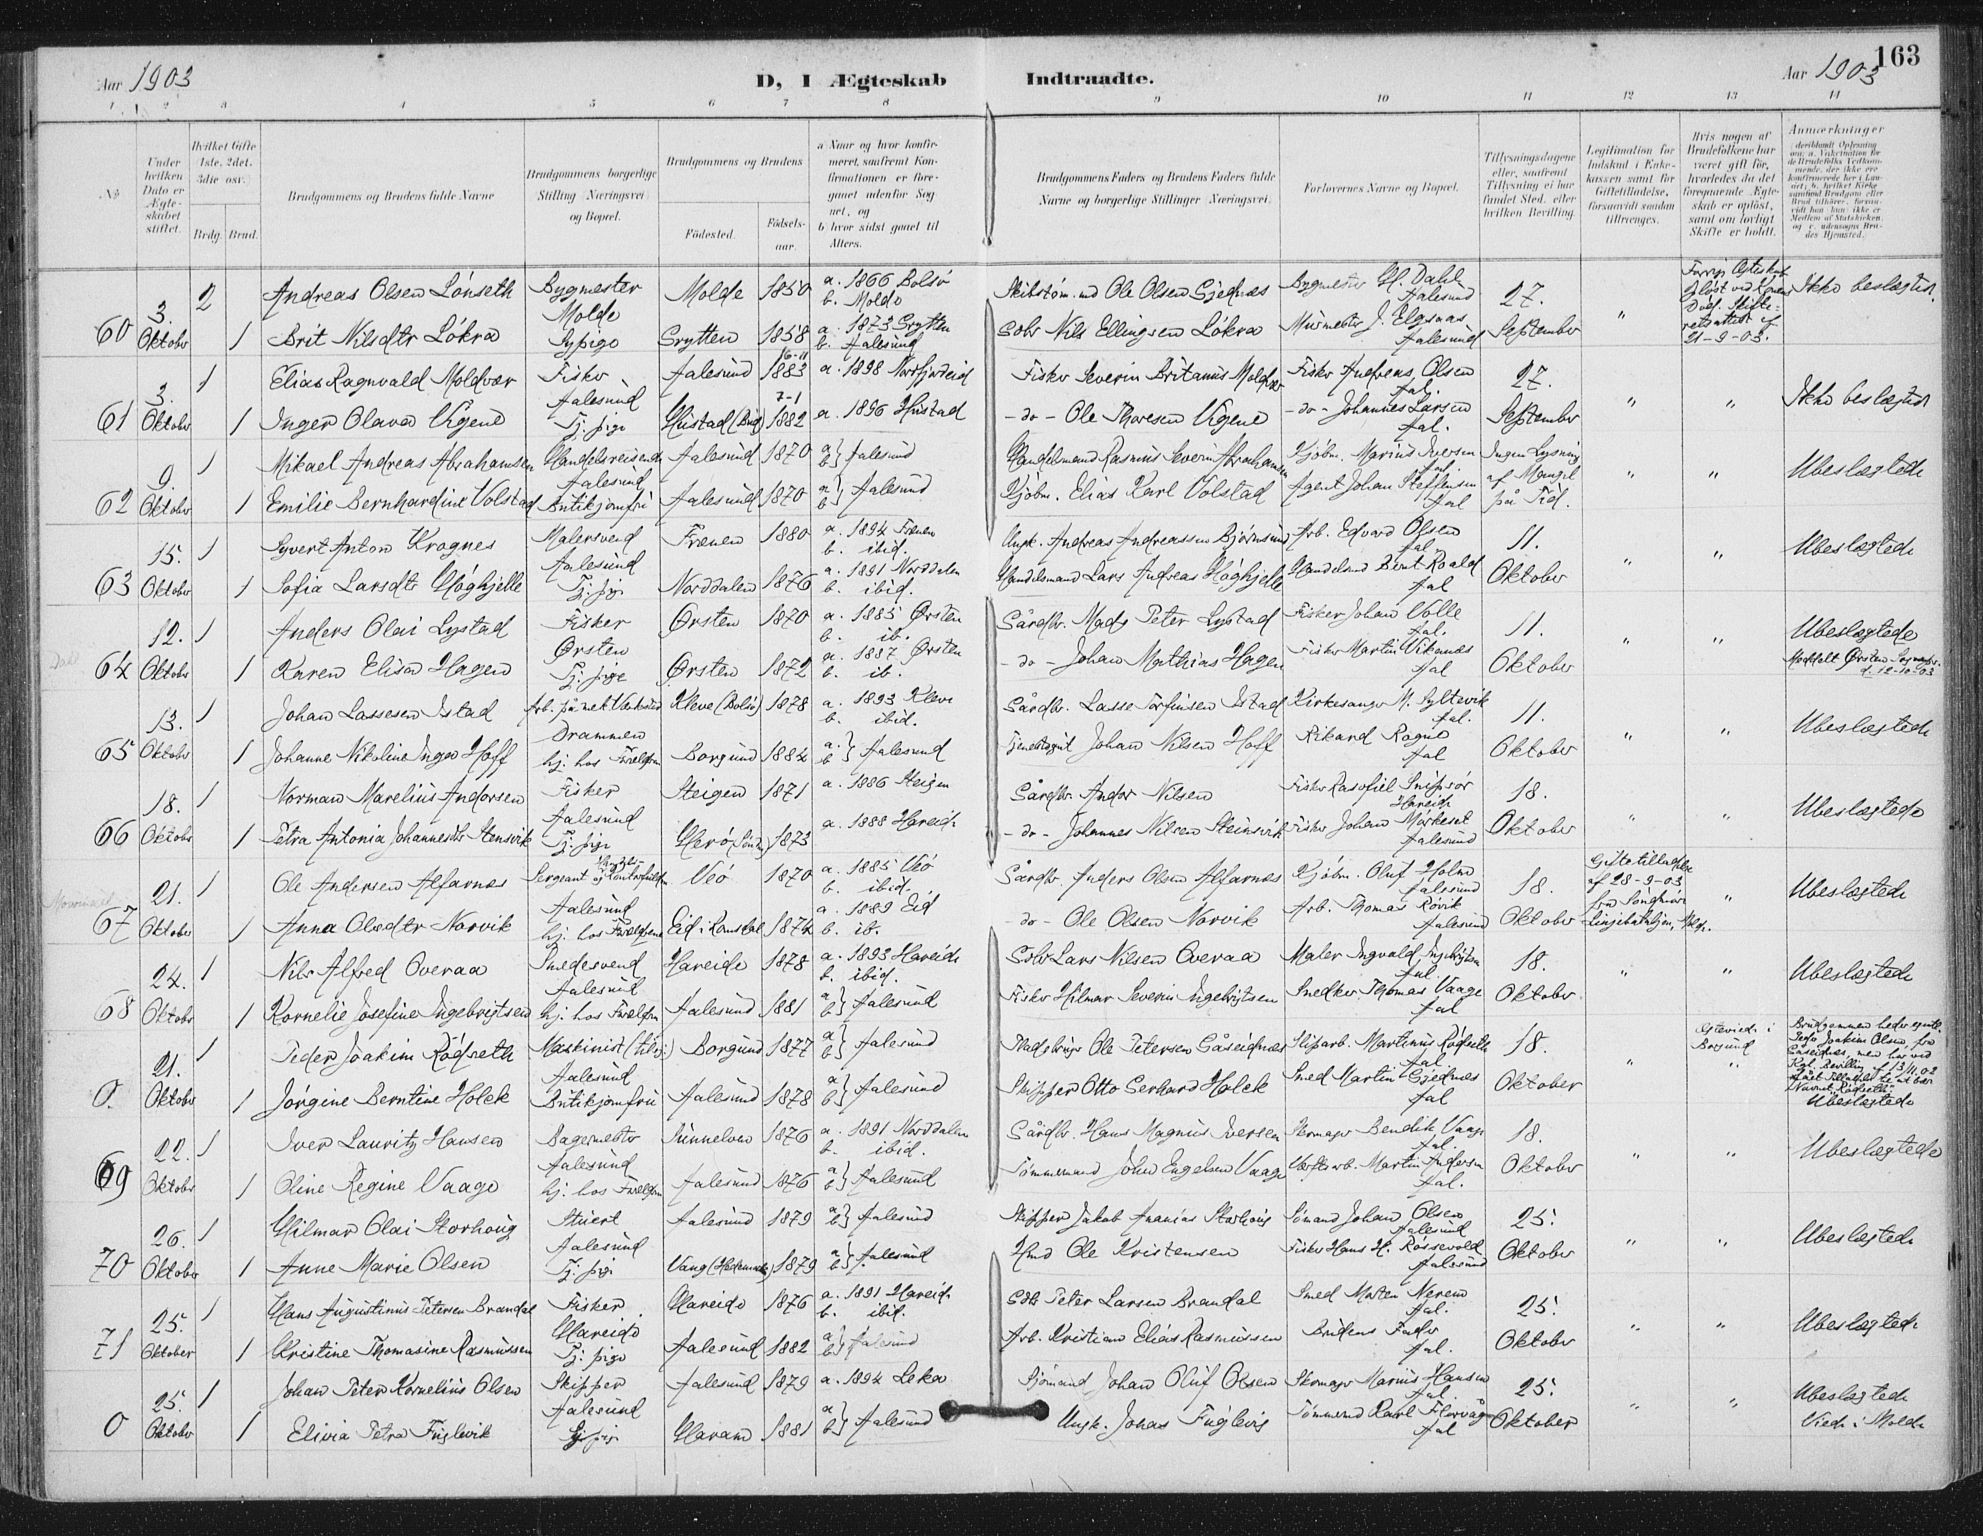 163
Aar 1903
D, I Ægteskab Indtraadte.
Aar 1903
1 2 3 4 5 6 7 8 9 10 11 12 13 14
No.
Under hvilken Dato er Ægteskabet stiftet.
Hvilket Gifte (1ste, 2det, 3die osv.)
Brdg. Brud.
Brudgommens og Brudens fulde Navne
Brudgommens borgerlige Stilling (Næringsvei) og Bopæl.
Brudgommens og Brudens
Födested. Födsels-aar.
a Naar og hvor konfirmeret, saafremt Konfirmationen er foregaaet udenfor Sognet, og
b hvor sidst gaaet til Alters.
Brudgommens Faders og Brudens Faders fulde Navne og borgerlige Stillinger (Næringsvei).
Forlovernes Navne og Bopæl.
Tillysningsdagene eller, saafremt Tillysning ei har fundet Sted, efter hvilken Bevilling.
Legitimation for Indskud i Enkekassen samt for Giftetilladelse, forsaavidt saadan tiltrænges.
Hvis nogen af Brudefolkene har været gift för, hvorledes da det foregaaende Ægteskab er oplöst, samt om lovligt Skifte er holdt.
Anmærkninger
60 3. Oktober 2 Andreas Olsen Lönseth Bygmester Molde Molde 1850 a. 1866 Bolsö b. Molde Ole Olsen Gjednæs Bygmester Dahl Aalesund 27. September " Ikke beslægted.
1 Brit Nilsdtr Lökra Sypige Grytten 1858 a. 1873 Grytten b. Aalesund Nils Ellingsen Lökra Murmester J. Elgsaas Aalesund 21-9-03.
61 3. Oktober 1 Elias Ragnvald Moldvær Fisker Aalesund Aalesund 16-11 1883 a. 1898 Nordfjordeid Fisker Severin Britanus Moldvær Fisker Andreas Olsen Aal. 27. September " " Ikke beslægted
1 Inger Olava Vigene Tj. pige Hustad (Bud) 7-1 1882 a. 1896 Hustad - do - Ole Thoresen Vigene - do - Johannes Larsen Aal.
62 9. Oktober 1 Mikael Andreas Abrahamsen Handelsreisende Aalesund Aalesund 1870 a b } Aalesund Handelsmand Rasmus Severin Abrahamsen Kjöbm. Marius Iversen Aal. Ingen Lysning af Mangel på Tid. " " Ubeslægtede
1 Emilie Bernhardine Volstad Butikjomfru Aalesund 1870 a b } Aalesund Kjöbm. Elias Karl Volstad Agent Johan Steffensen Aal
63 15. Oktober 1 Syvert Anton Krognes Malersvend Aalesund Frænen 1880 a. 1894 Frænen b. ibid. Ungk. Andreas Andreassen Björnsund Arb. Edvard Olsen Aal. 11. Oktober " " Ubeslægtede
1 Sofia Larsdtr Höghjelle Tj. pige Norddalen 1876 a. 1891 Norddalen b. ibid. Handelsmand Lars Andreas Höghjelle Handelsmd Bernt Roald Aal
64 12. Oktober 1 Anders Olai Lystad Fisker Ørsten Ørsten 1870 a. 1885 Ørsten b. ib. Gårdbr. Mads Peter Lystad Fisker Johan Volle Aal. 11. Oktober " " Ubeslægtede
1 Karen Elisa Hagen Tj. pige Ørsten 1872 a. 1887 Ørsten b. ib. - do - Johan Mathias Hagen Fisker Martin Vikenes Aal d. 12-10-03
65 13. Oktober 1 Johan Lassesen Istad Arb. på mek. Værksted Drammen Kleve (Bolsö) 1878 a. 1893 Kleve b. ibid. Gårdbr. Lasse Torfinsen Istad Kirkesanger M. Syltevik Aal. 11. Oktober " " Ubeslægtede
1 Johanne Nikoline Inga Hoff hj. hos Forældrene Borgund 1884 a. b } Aalesund Johan Nilsen Hoff Rikard Rogne Aal
66 18. Oktober 1 Norman Marelius Andersen Fisker Aalesund Steigen 1871 a. 1886 Steigen Gårdbr. Andor Nilsen 18. Oktober " " Ubeslægtede
1 Petra Antonia Johannesdtr Stensvik Tj. pige Herö 1873 a. 1888 Hareide - do - Johannes Nilsen Steinsvik Fisker Johan Mörkeset Aalesund
67 21. Oktober 1 Ole Andersen Alfarnæs Sergeant og Kontorfuldm. Aalesund Veö 1870 a. 1885 Veö b. ibid. Gårdbr. Anders Olsen Alfarnæs Kjöbm. Oluf Holm Aalesund 18. Oktober Giftetilladelse af 28-9-03 " Ubeslægtede
1 Anna Olsdtr Norvik hj. hos Forældrene Eid i Romsdal 1874 a. 1889 Eid b. ib. - do - Ole Olsen Norvik Arb. Thomas Rövik Aalesund
68 24. Oktober 1 Nils Alfred Overaa Smedesvend Aalesund Hareide 1878 a. 1893 Hareide b. ibid. Lars Nilsen Overaa Maler Ingvald Ingebrigtsen Aal. 18. Oktober " " Ubeslægtede
1 Kornelie Josefine Ingebrigtsen hj. hos Forældrene Aalesund 1881 a b } Aalesund Fisker Hilmar Severin Ingebrigtsen Snedker Thomas Vaage Aal
0. 21. Oktober 1 Peder Joakim Rödseth Maskinist Aalesund Borgund 1877 a b } Aalesund Ole Petersen Gåseidnes Martinus Rödseth Aal 18. Oktober " Borgund " Brudgommen heder Joakim Olsen fra Gåseidnes, men har ved Kgl. Bevilling Navnet Rödseth Ubeslægtede
1 Jörgine Berntine Holck Butikjomfru Aalesund 1878 a b } Aalesund Skipper Otto Gerhard Holck Smed Martin Gjednes Aal
69 22. Oktober 1 Iver Lauritz Hansen Bagermester Aalesund Sunnelven 1876 a. 1891 Norddalen b. ibid. Gårdbr. Hans Magnus Iversen Skomager Bendik Vaage Aal. 18. Oktober " " Ubeslægtede
1 Oline Regine Vaage hj. hos Forældrene Aalesund 1876 a b } Aalesund Tömmermd John Engelsen Vaage Martin Andersen Aal.
70 26. Oktober 1 Hilmar Olai Storhoug Stuert Aalesund Aalesund 1879 a b } Aalesund Skipper Jakob Ananias Storhoug Sömand Johan Olsen Aalesund 25. Oktober " " Ubeslægtede
1 Anne Marie Olsen Tj. pige Vang (Hedemarken) 1879 a b } Aalesund Ole Kristensen Fisker Hans H. Rossevold Aalesund
71 25. Oktober 1 Hans Augustinus Petersen Brandal Fisker Hareide Hareide 1876 a. 1891 Hareide b. ibid. Peter Larsen Brandal Smed Morten Nerem Aal. 25. Oktober " " Ubeslægtede
1 Kristine Thomasine Rasmussen Tj. pige Aalesund 1882 a b } Aalesund Arb. Kristian Elias Rasmussen Brudens Fader Aal.
0 25. Oktober 1 Johan Peter Kornelius Olsen Skipper Aalesund Aalesund 1879 a. 1894 Leka Sjömand Johan Oluf Olsen Skomager Marius Hansen Aal. 25. Oktober " " Ubeslægtede
1 Elivia Petra Fuglevik Tj. pige Haram 1881 a b } Aalesund Ungk. Johas Fuglevig Tömmermd Karl Flovåg Aal Viede i Molde